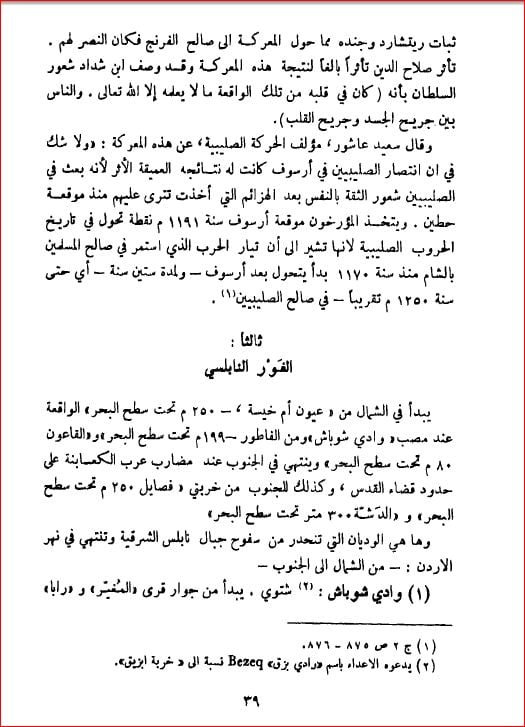 ثبات ريتشارد وجنده مما حول المعركة الى صالح الفرنج فكان النصر لهم .
تأثر صلاح الدين تأثراً بالغاً لنتيجة هذه المعركة وقد وصف ابن شداد شعور
السلطان بأنه ( كان في قلبه من تلك الواقعة ما لا يعلمه إلا الله تعالى . والناس
بين جريح الجسد وجريح القلب ) .
وقال سعيد عاشور ، مؤلف الحركة الصليبية ، عن هذه المعركة : «ولا شك
في ان انتصار الصليبيين في أرسوف كانت له نتائجه العميقة الأثر لأنه بعث في
الصليبيين شعور الثقة بالنفس بعد الهزائم التي أخذت تترى عليهم منذ موقعة
حطين . ويتخذ المؤرخون موقعة أرسوف سنة ١١٩١ م نقطة تحول في تاريخ
الحروب الصليبية لانها تشير الى أن تيار الحرب الذي استمر في صالح المسلمين
بالشام منذ سنة ١١٧٠ بدأ يتحول بعد أرسوف – ولمدة ستين سنة – أي حتى
سنة ١٢٥٠ م تقريباً – في صالح الصليبيين (١) .
ثالثا :
الغور النابلسي
يبدأ في الشمال من « عيون أم خيسة ، – ٢٥٠ م تحت سطح البحر» الواقعة
عند مصب «وادي شوباش» ومن الفاطور –١٩٩م تحت سطح البحر» و«القاعون
٨٠ م تحت سطح البحر» وينتهي في الجنوب عند مضارب عرب الكعابنة على
حدود قضاء القدس ، وكذلك للجنوب من خربتي « فصايل ٢٥٠ م تحت سطح
البحر» و «الدَشّة ٣٠٠ متر تحت سطح البحر»
وها هي الوديان التي تنحدر من سفوح جبال نابلس الشرقية وتنتهي في نهر
الاردن : – من الشمال الى الجنوب –
(١) وادي شوباش : (٢) شتوي . يبدأ من جوار قرى «المُغيّر» و «رابا»
(١) ج ٢ ص ٨٧٥ – ٨٧٦.
(٢) يدعوه الاعداء باسم «وادي بزق» Bezeq نسبة الى « خربة ابزيق».
٣٩